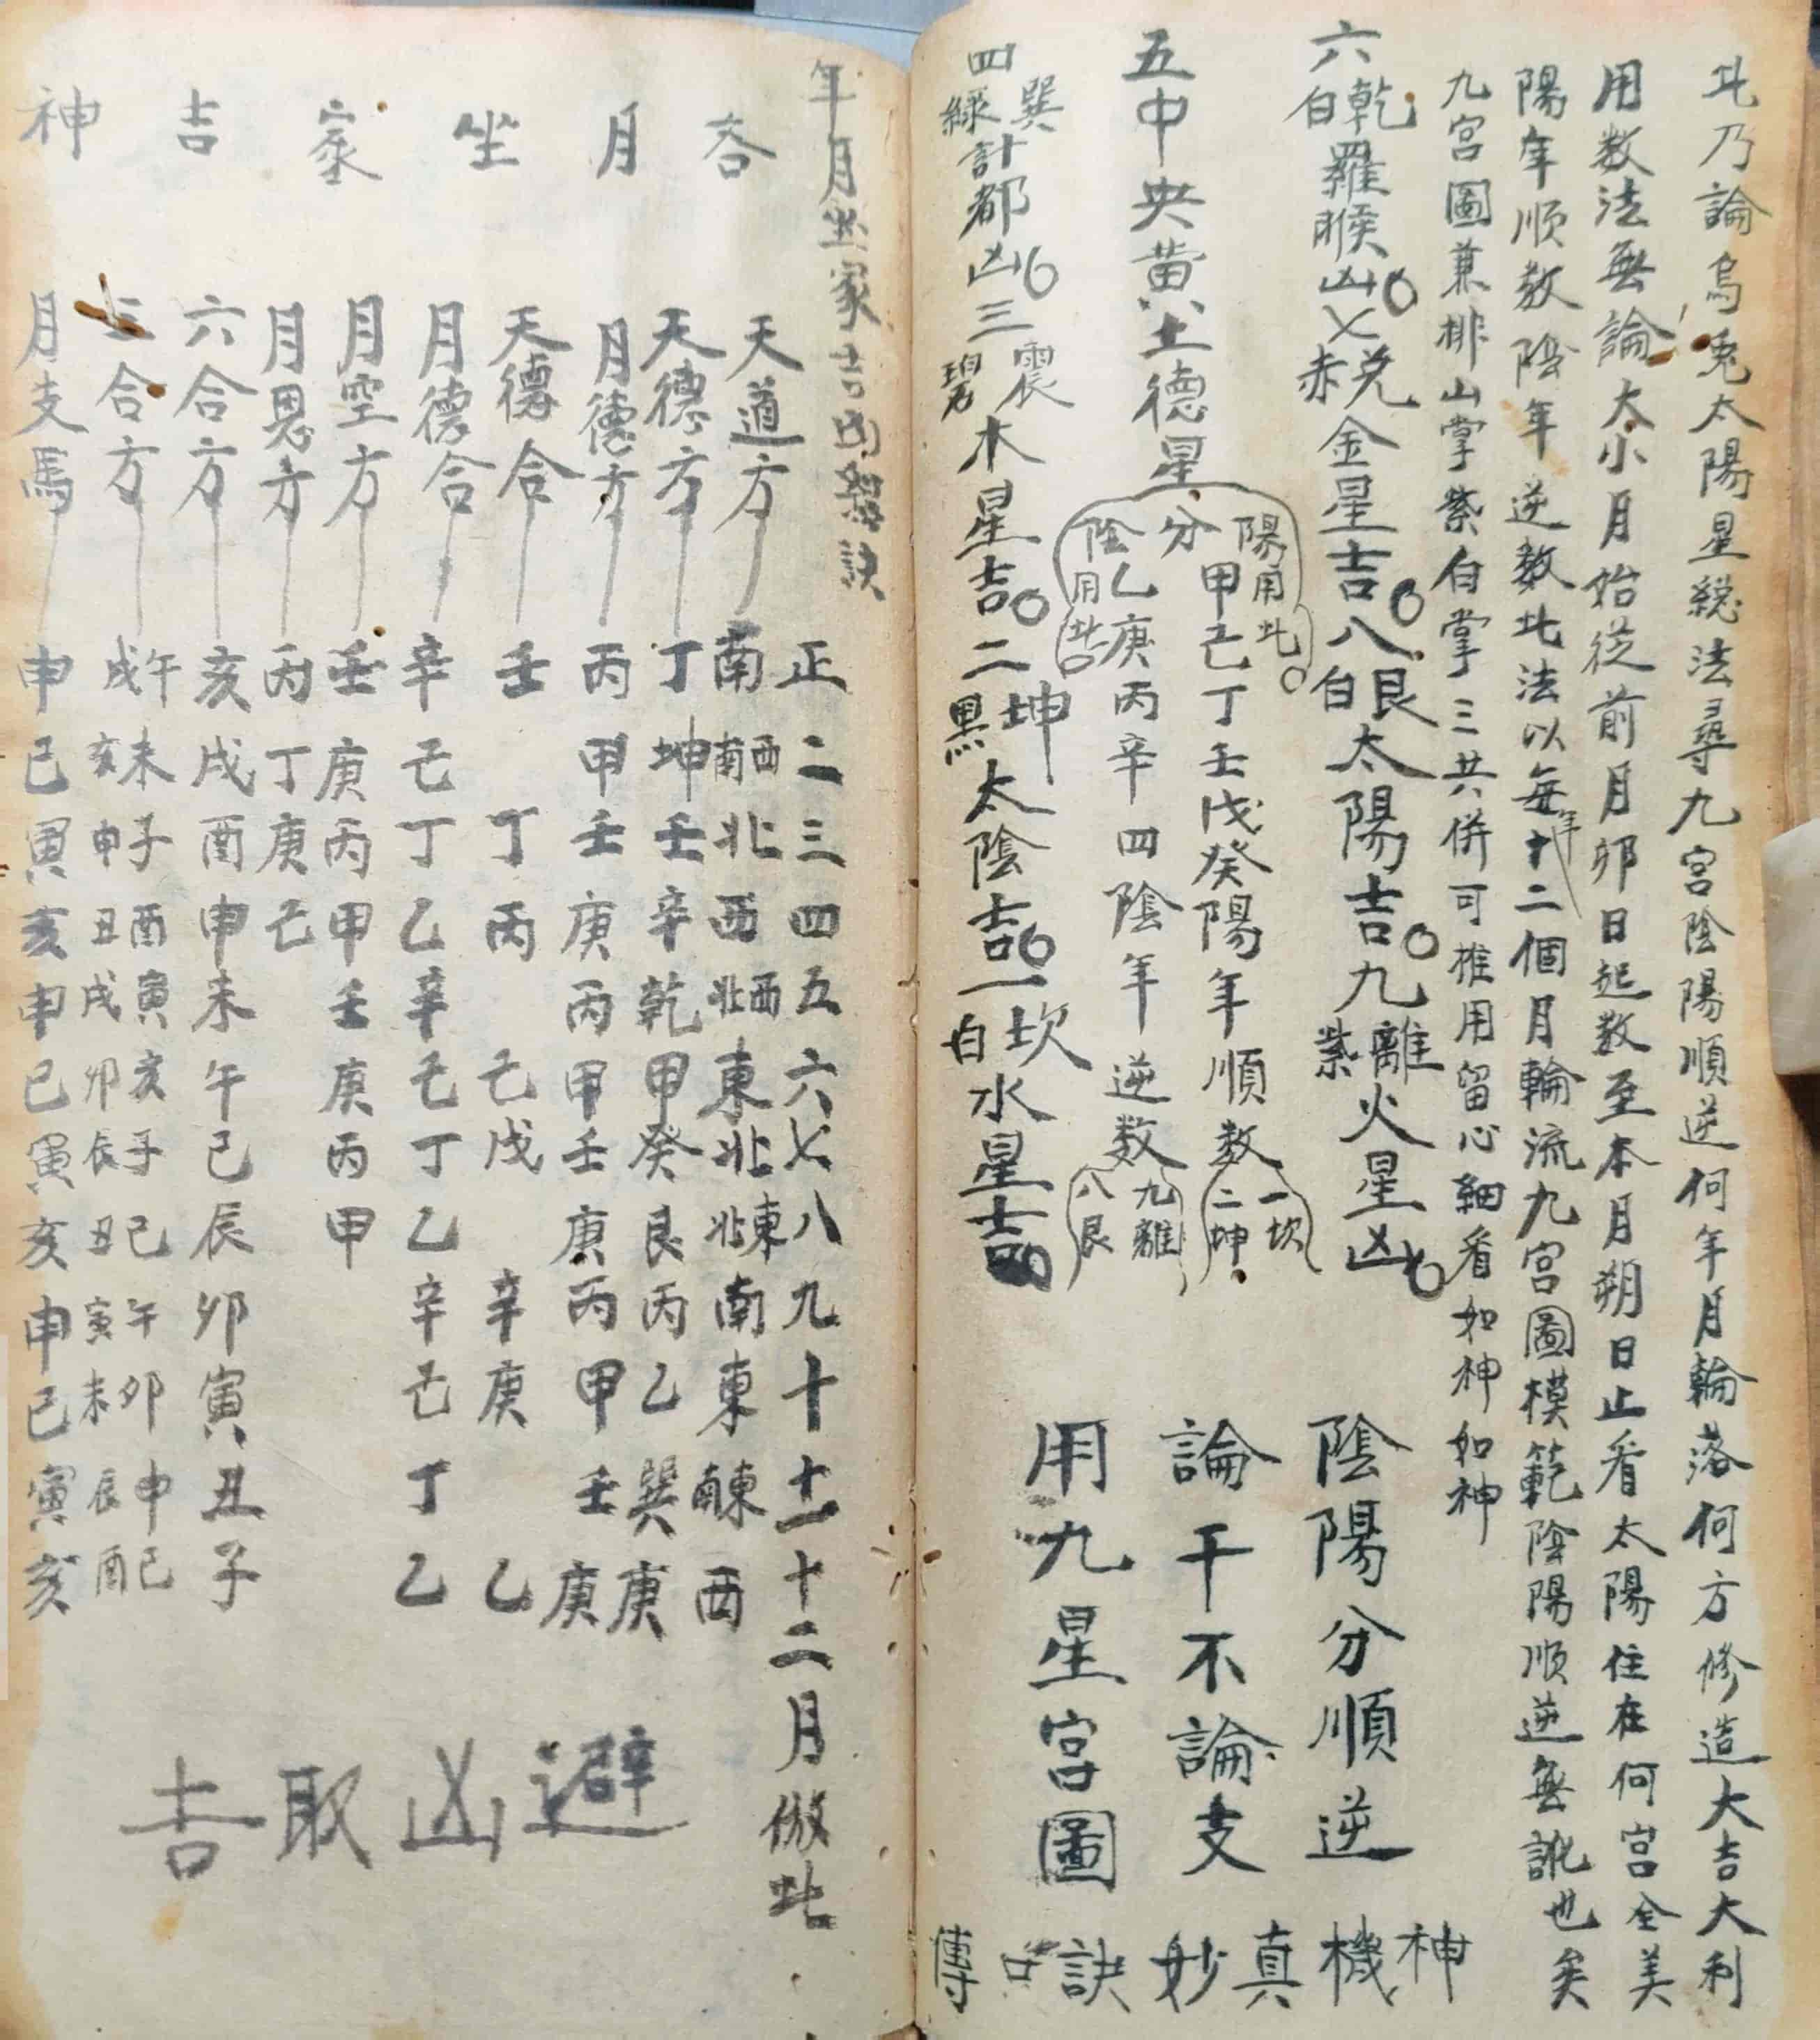 此乃論烏兎太陽星総法尋九宮陰陽順逆何年月輪落何方修造大吉大利
用数法無論大小月始從前月卯日起数至本月朔日止看太陽住在何宮全美
陽年順数陰年逆数此法以每年十二個月輪流九宮圖模範陰陽順逆無訛也矣
九宮圖兼排山掌紫白掌三共併可推用留心細看如神如神
六白乾羅睺凶七赤兌金星吉八白艮太陽吉九紫離火星凶
五中央黄土德星
陽用此 甲己丁壬戊癸陽年順数 一坎 二坤
分
陰用此 乙庚丙辛四陰年逆数 九離 八艮
四綠巽計都凶三碧震木星吉二黑坤太陰吉一白坎水星吉
陰陽分順逆
論干不論支
用九星宮圖
神機真妙訣口傳
年月坐家吉凶總訣
各月坐家吉神
正二三四五六七八九十十一十二月倣此
天道方 南 西南 北 西 西北 東 北 東北 南 東 東南 西
天德方 丁坤壬辛乾甲癸艮丙乙巽庚
月德方 丙甲壬庚丙甲壬庚丙甲壬庚
天德合 壬 丁丙 己戊 辛庚 乙
月德合 辛己丁乙辛己丁乙辛己丁乙
月空方 壬庚丙甲壬庚丙甲
月恩方 丙丁庚己
六合方 亥戌酉申未午巳辰卯寅丑子
三合方 午戌 未亥 子申 酉丑 寅戌 亥卯 子辰 巳丑 午寅 卯未 申辰 巳酉
月支馬 申巳寅亥申巳寅亥申巳寅亥
避凶取吉